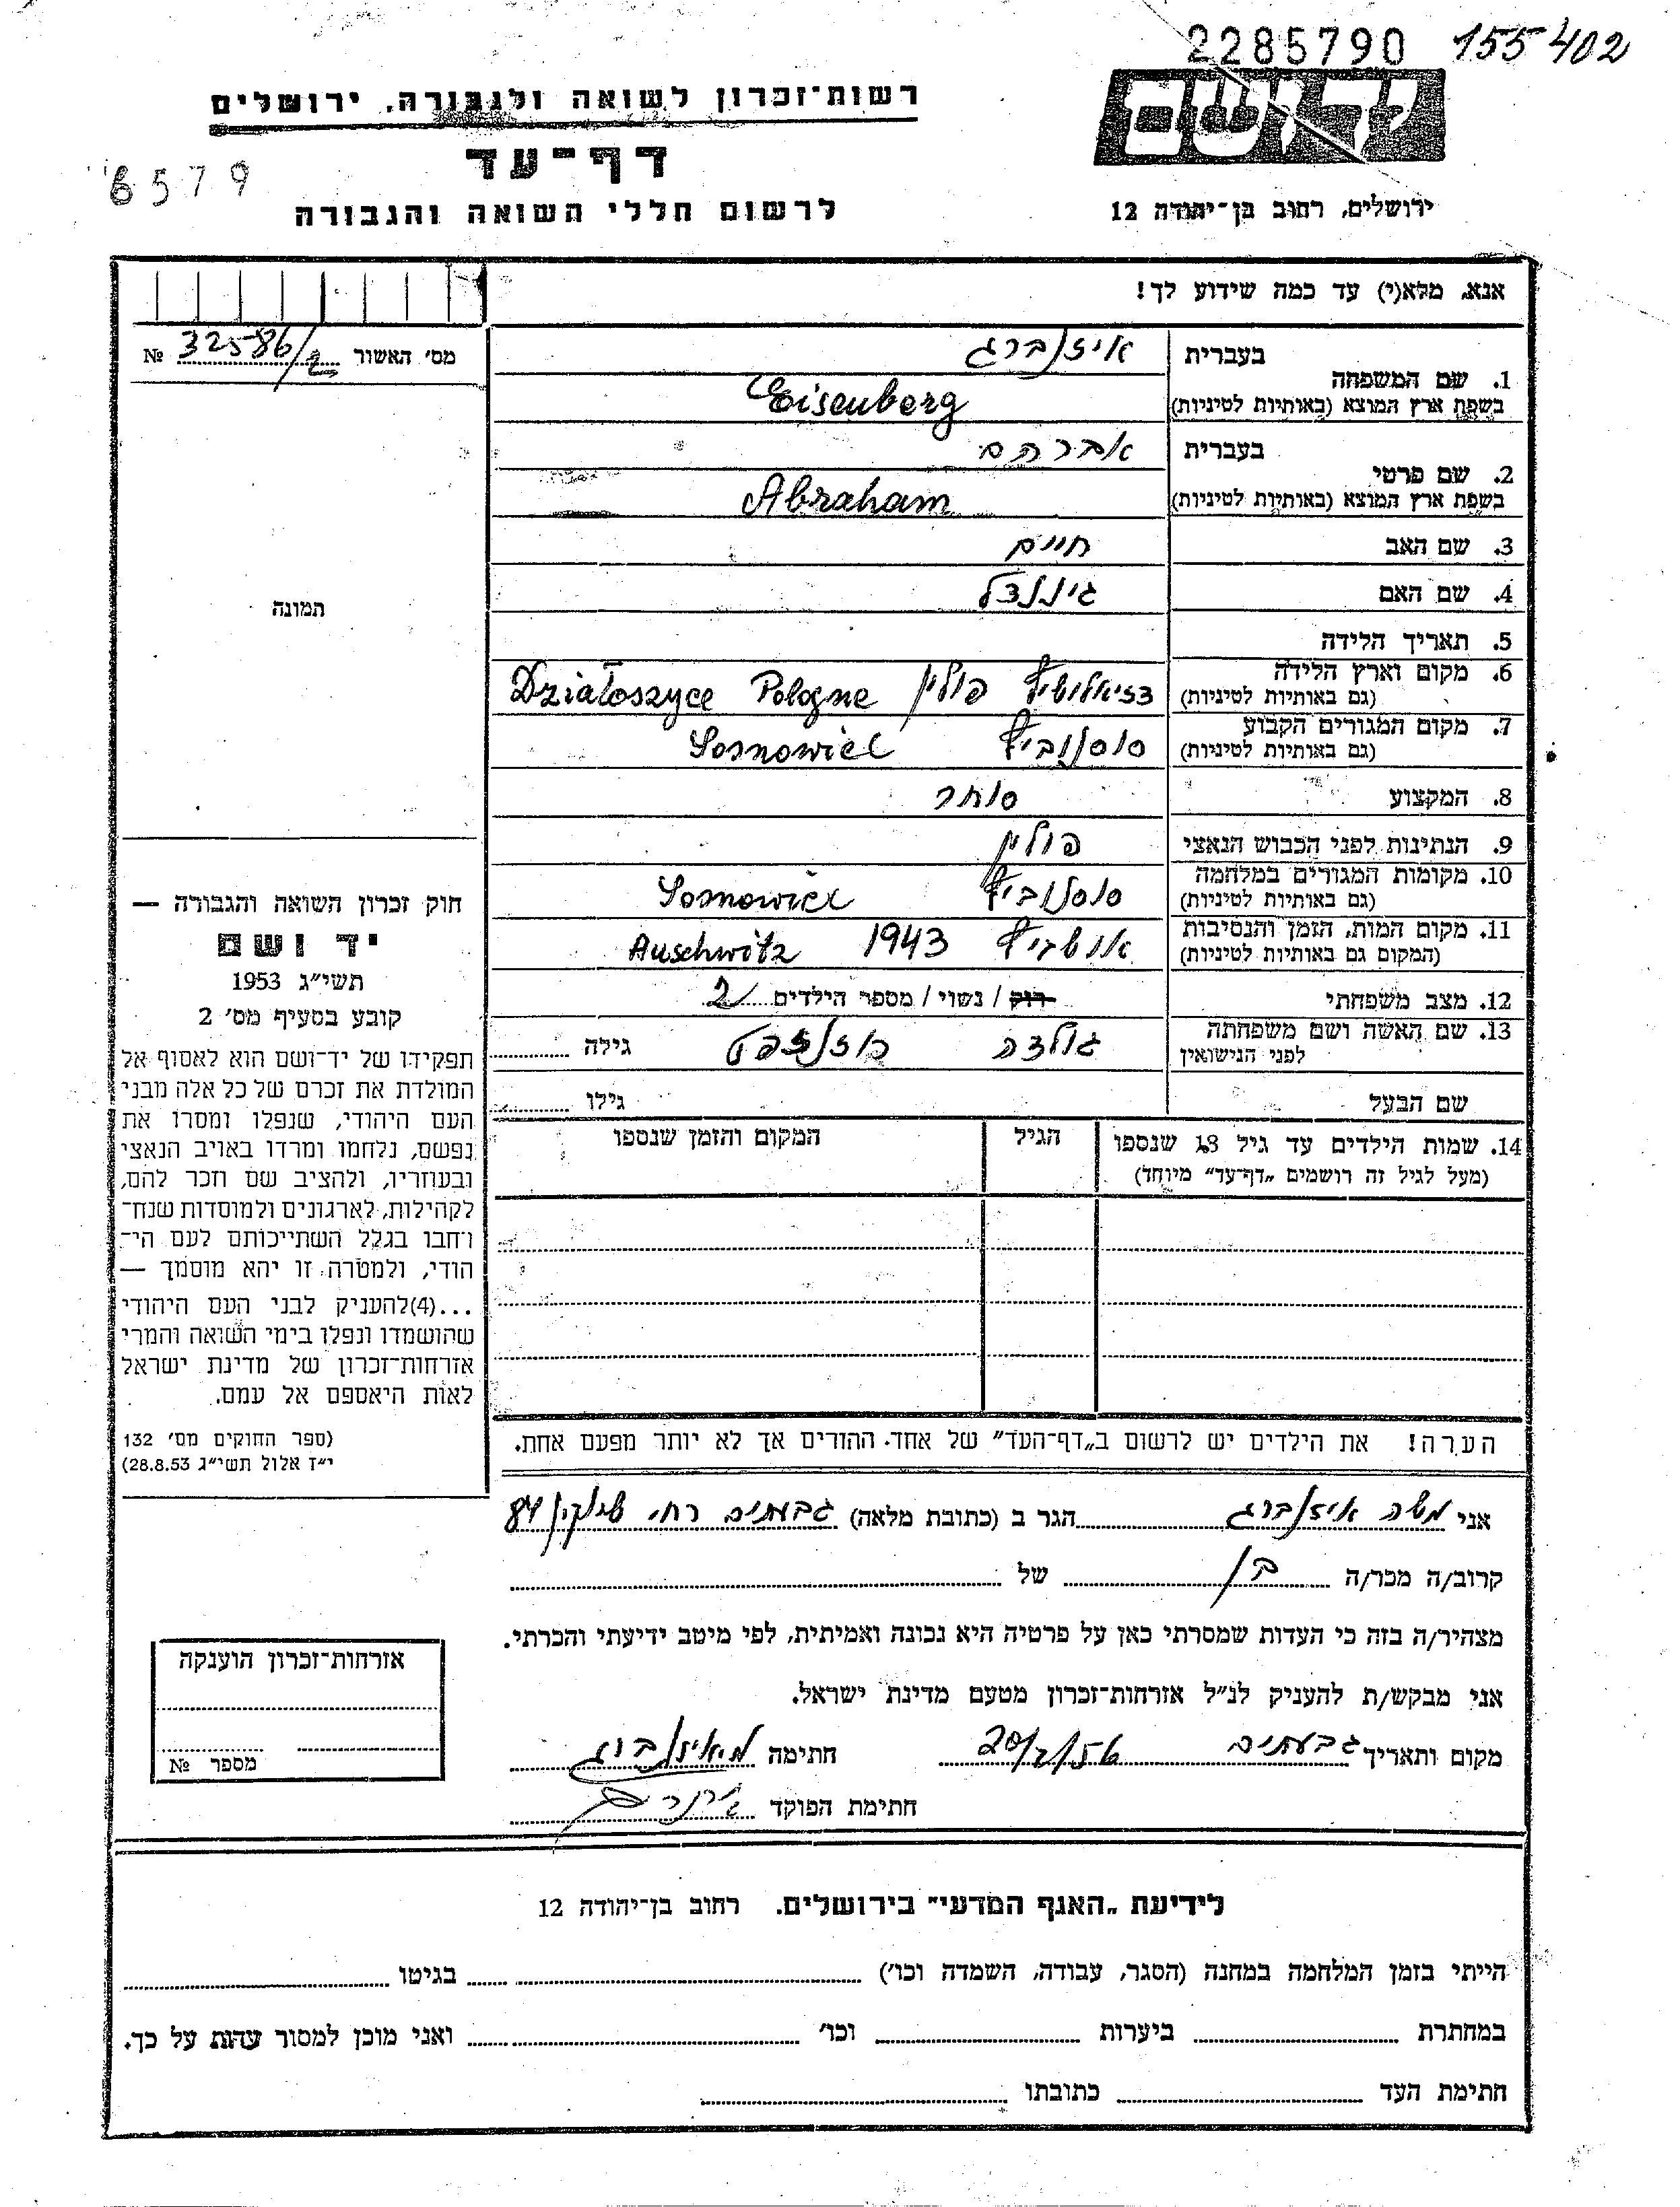 2285790 155402
רשות־זכרון לשואה ולגבורה, ירושלים
יד ושם
דף־עד
6579
לרשום חללי השואה והגבורה
ירושלים, רחוב בן־יהודה 12
אנא, מלא(י) עד כמה שידוע לך!
מס׳ האשור 32586/2 №
בעברית איזנברג
1. שם המשפחה
בשפת ארץ המוצא (באותיות לטיניות) Eisenberg
בעברית אברהם
2. שם פרטי
בשפת ארץ המוצא (באותיות לטיניות) Abraham
3. שם האב חיים
4. שם האם
תמונה
5. תאריך הלידה
6. מקום וארץ הלידה
(גם באותיות לטיניות) פולין Działoszyce Pologne
7. מקום המגורים הקבוע
(גם באותיות לטיניות) סוסנוביץ Sosnowiec
8. המקצוע סוחר
9. הנתינות לפני הכבוש הנאצי פולין
10. מקומות המגורים במלחמה
(גם באותיות לטיניות) סוסנוביץ Sosnowiec
11. מקום המות, הזמן והנסיבות
(המקום גם באותיות לטיניות) אושביץ 1943 Auschwitz
12. מצב משפחתי רוק / נשוי / מספר הילדים 2
13. שם האשה ושם משפחתה
לפני הנישואין גולדה גילה
שם הבעל גילו
14. שמות הילדים עד גיל 18 שנספו הגיל המקום והזמן שנספו
(מעל לגיל זה רושמים „דף־עד״ מיוחד)
חוק זכרון השואה והגבורה —
יד ושם
תשי״ג 1953
קובע בסעיף מס׳ 2
תפקידו של יד־ושם הוא לאסוף אל
המולדת את זכרם של כל אלה מבני
העם היהודי, שנפלו ומסרו את
נפשם, נלחמו ומרדו באויב הנאצי
ובעוזריו, ולהציב שם וזכר להם,
לקהילות, לארגונים ולמוסדות שנח־
רחבו בגלל השתייכותם לעם הי־
הודי, ולמטרה זו יהא מוסמך —
...(4)להעניק לבני העם היהודי
שהושמדו ונפלו בימי השואה והמרי
אזרחות־זכרון של מדינת ישראל
לאות היאספם אל עמם.
(ספר החוקים מס׳ 132
י״ז אלול תשי״ג 28.8.53)
הערה! את הילדים יש לרשום ב„דף־העד״ של אחד. ההורים אך לא יותר מפעם אחת.
אני משה איזנברג הגר ב (כתובת מלאה) גבעתיים רח׳ שינקין 84
קרוב/ה מכר/ה בן של
מצהיר/ה בזה כי העדות שמסרתי כאן על פרטיה היא נכונה ואמיתית, לפי מיטב ידיעתי והכרתי.
אני מבקש/ת להעניק לנ״ל אזרחות־זכרון מטעם מדינת ישראל.
מקום ותאריך גבעתיים חתימה מ איזנברג
חתימת הפוקד
אזרחות־זכרון הוענקה
מספר №
לידיעת „האגף המדעי״ בירושלים. רחוב בן־יהודה 12
הייתי בזמן המלחמה במחנה (הסגר, עבודה, השמדה וכו׳) בגיטו
במחתרת ביערות וכו׳ ואני מוכן למסור עדות על כך.
חתימת העד כתובתו